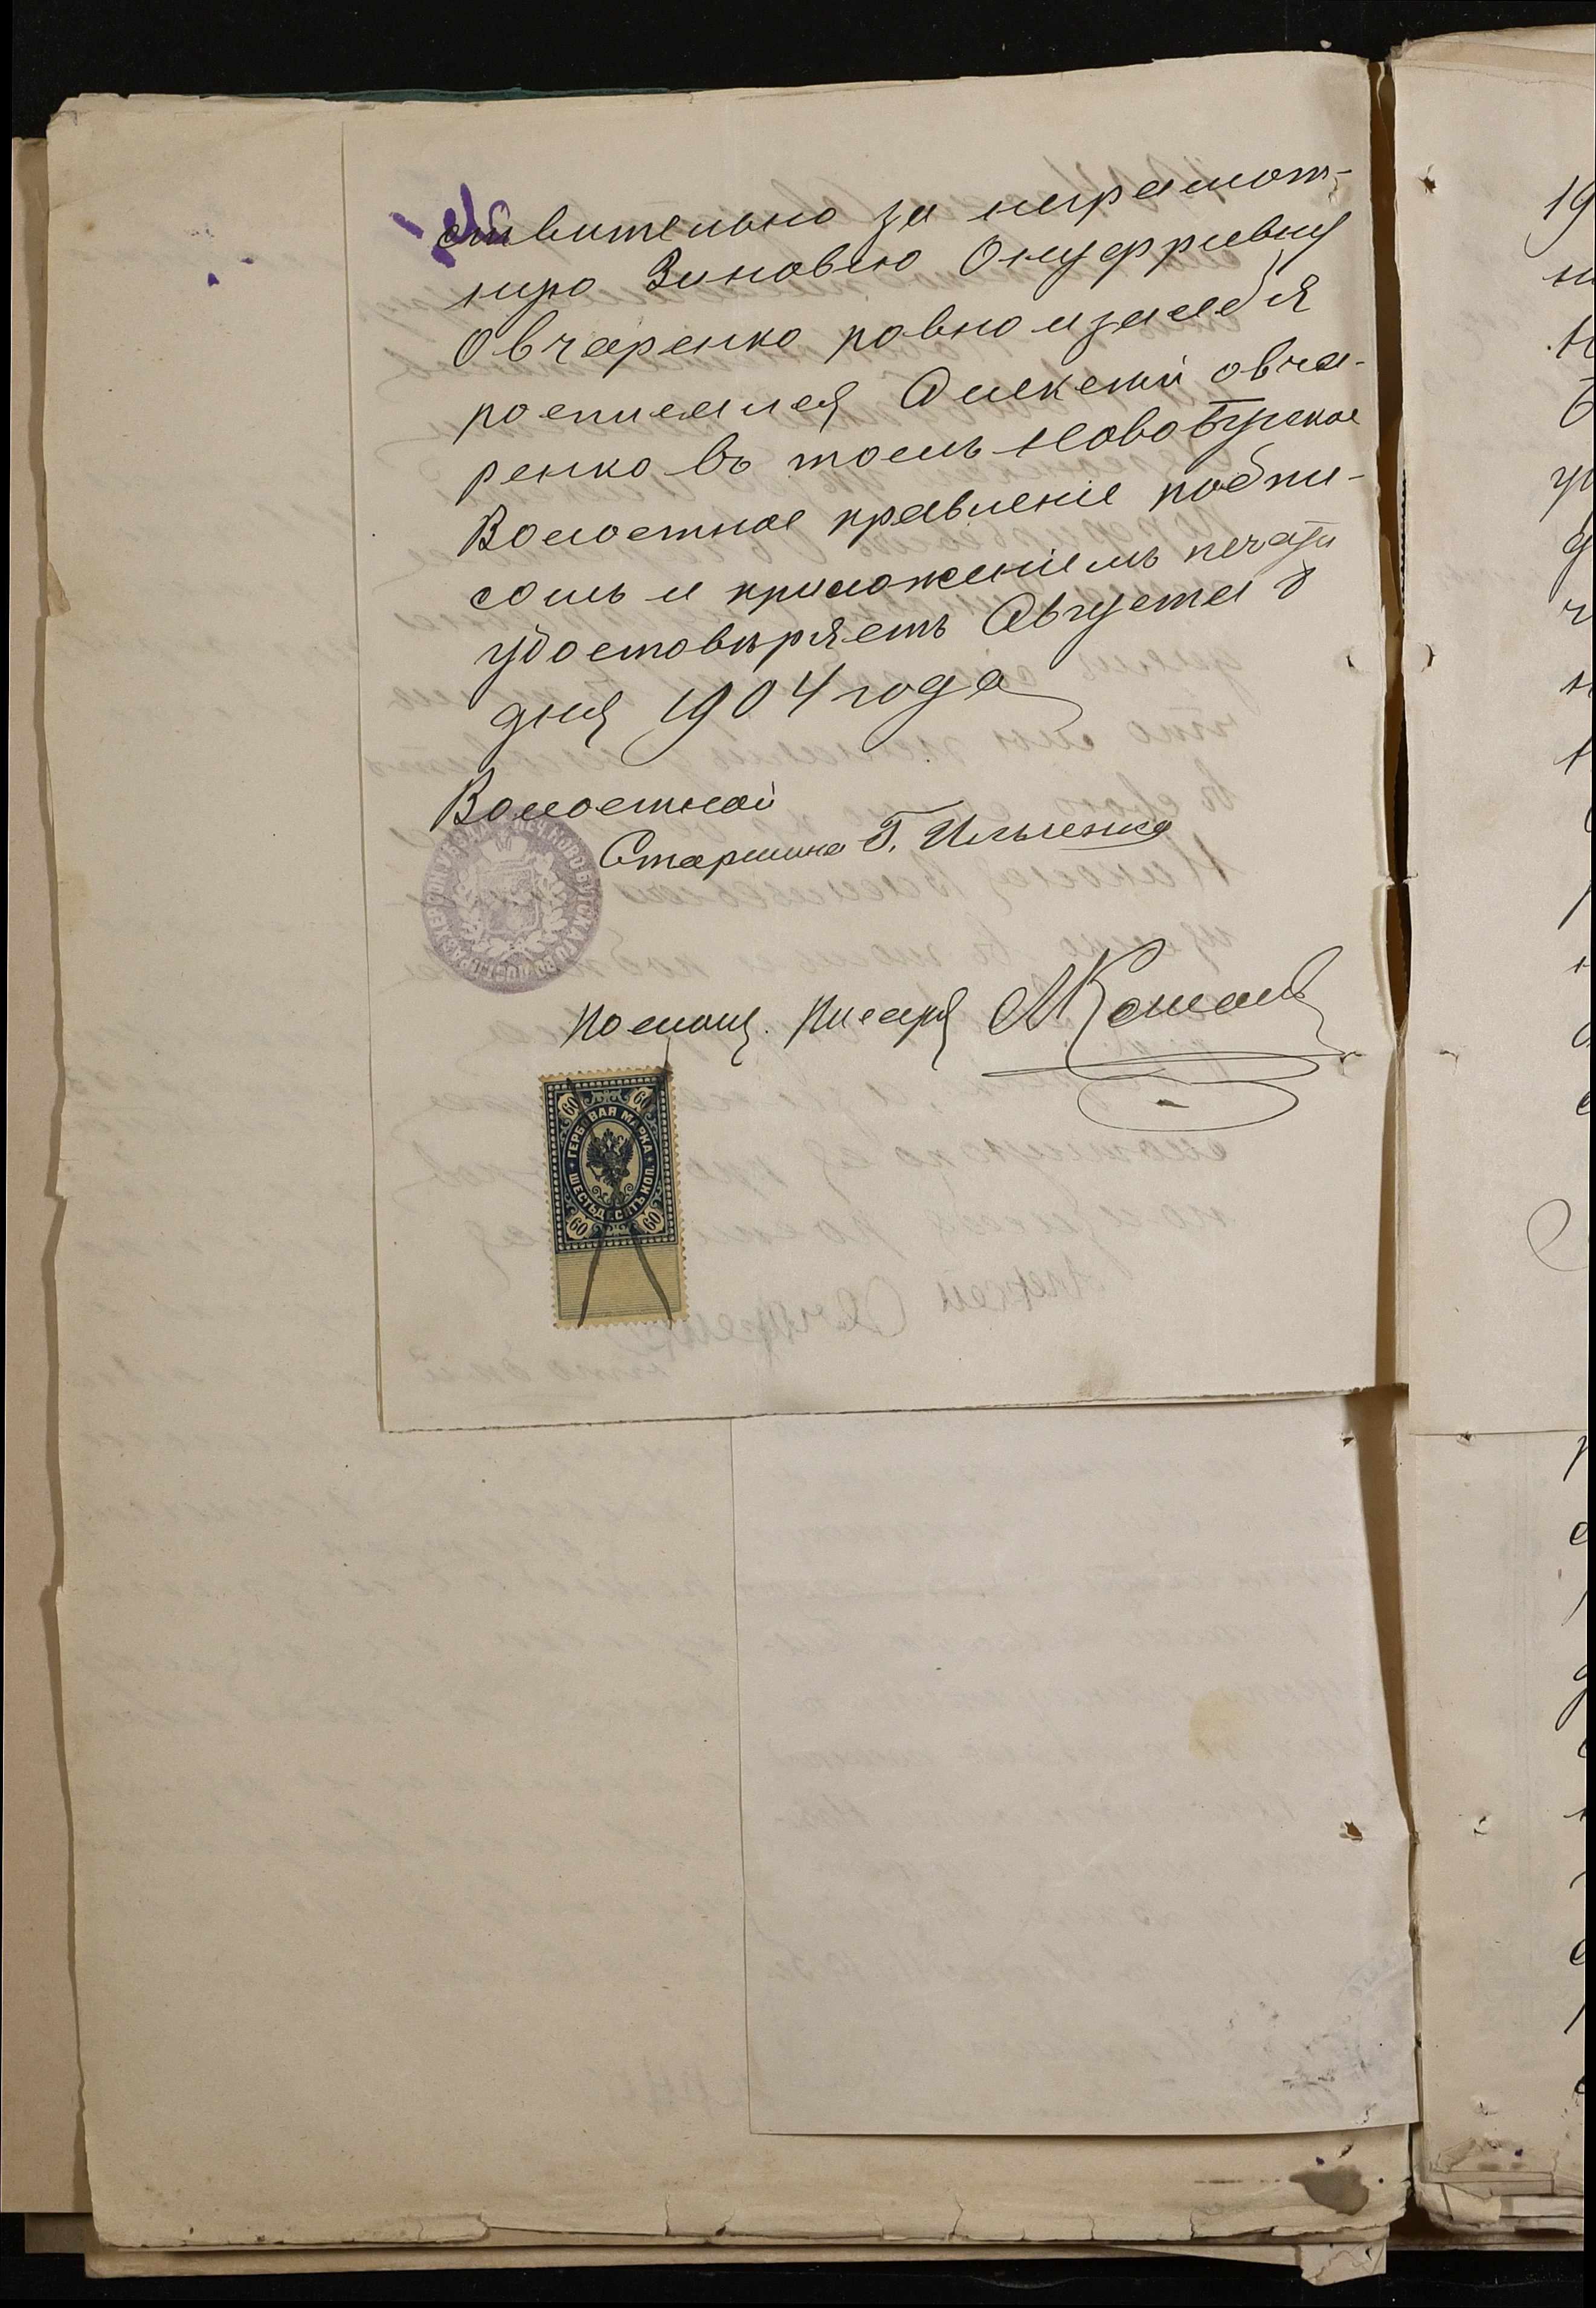 ствительно за неграмот-
ную Зиновію Онуфріевну
Овчаренко равно и за себя
росписался Алексей Овча-
ренко въ томъ Новобугское
Волостное правленіе подпи-
сомъ и приложеніемъ печати
удостовѣряетъ Августа 8
дня 1904 года
Волостной
Старшина Г. Ильченко
Помощ. Писаря
ГЕРБОВАЯ МАРКА
ШЕСТЬДЕСЯТЪ КОП.
60 60
60 60
19